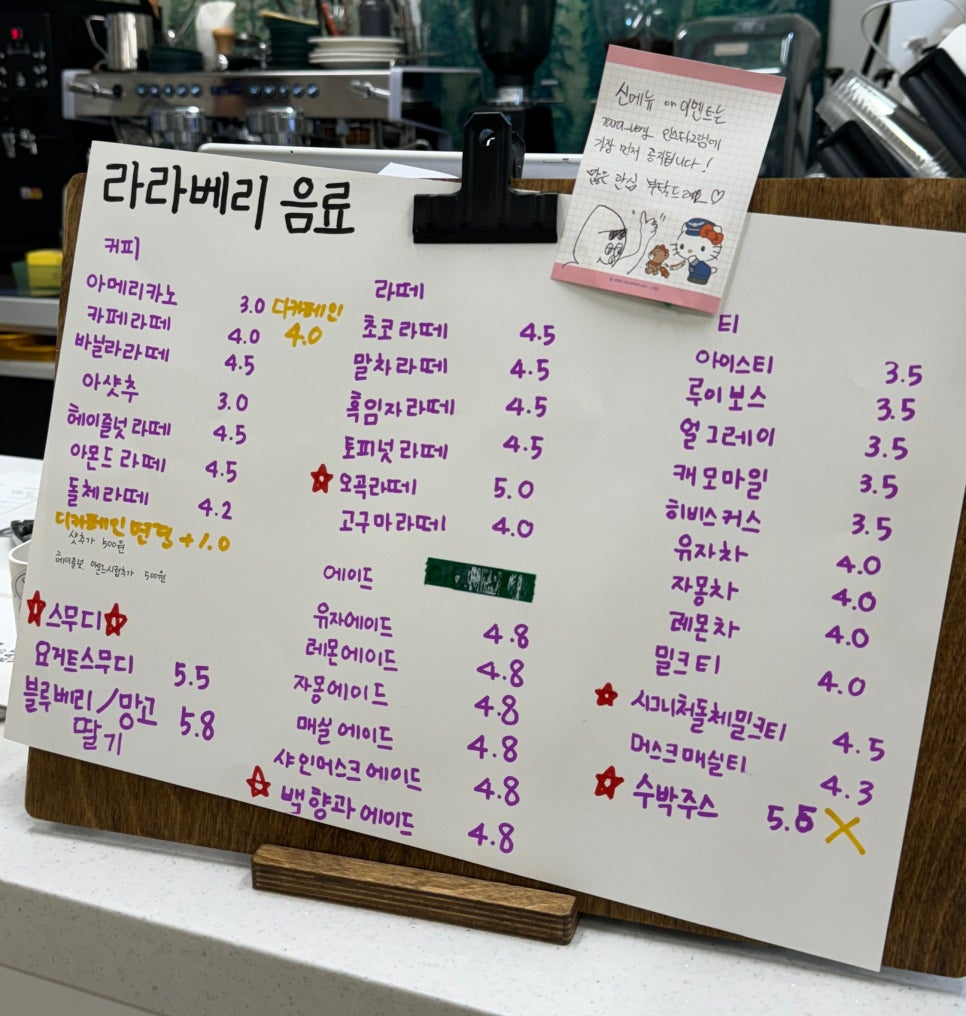 라라베리 음료
커피
아메리카노 3.0 디카페인 4.0
카페라떼 4.0
바닐라라떼 4.5
아샷추 3.0
헤이즐넛 라떼 4.5
아몬드 라떼 4.5
돌체라떼 4.2
디카페인 변경 +1.0
샷추가 500원
헤이즐넛 아몬드시럽추가 500원
스무디
요거트스무디 5.5
블루베리/망고 5.8
딸기
라떼
초코라떼 4.5
말차라떼 4.5
흑임자라떼 4.5
토피넛라떼 4.5
오곡라떼 5.0
고구마라떼 4.0
에이드
유자에이드 4.8
레몬에이드 4.8
자몽에이드 4.8
매실에이드 4.8
샤인머스크에이드 4.8
백향과에이드 4.8
신메뉴 및 이벤트는
인스타그램에
가장 먼저 공지됩니다!
많은 관심 부탁드려요♡
티
아이스티 3.5
루이보스 3.5
얼그레이 3.5
캐모마일 3.5
히비스커스 3.5
유자차 4.0
자몽차 4.0
레몬차 4.0
밀크티 4.0
시그니처돌체밀크티 4.5
머스크매실티 4.3
수박주스 5.5